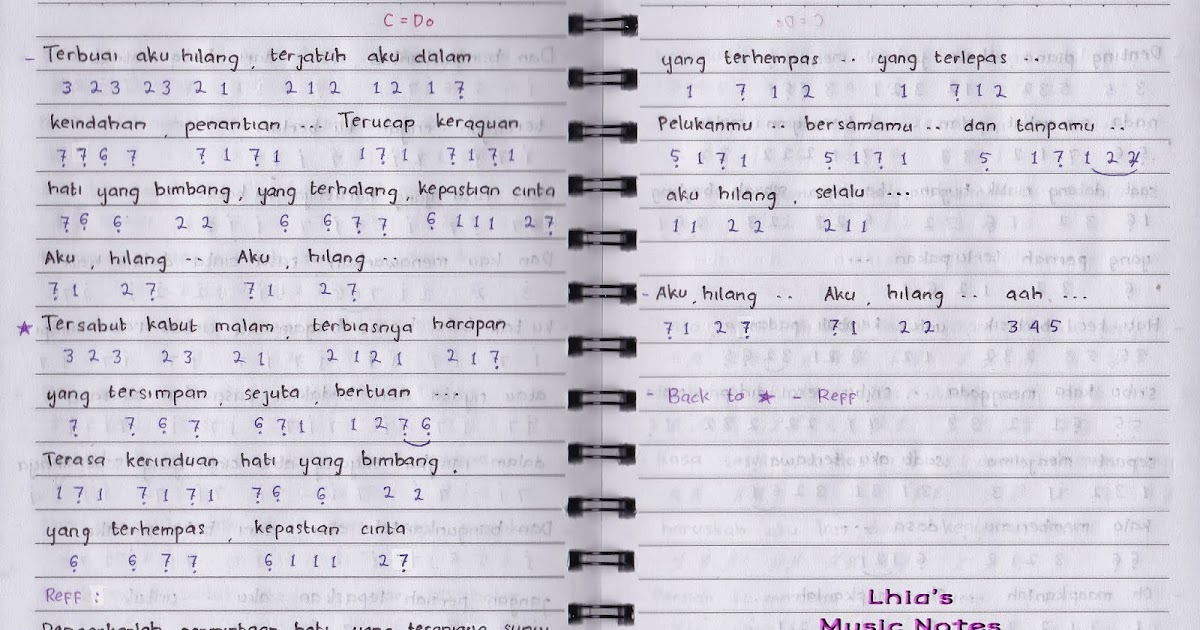 C = Do
- Terbuai aku hilang, terjatuh aku dalam
3 2 3 2 3 2 1 2 1 2 1 2 1 7̣
keindahan, penantian ... Terucap keraguan
7̣ 7̣ 6̣ 7̣ 7̣ 1 7̣ 1 1 7̣ 1 7̣ 1 7̣ 1
hati yang bimbang, yang terhalang, kepastian cinta
7̣ 6̣ 6̣ 2 2 6̣ 6̣ 7̣ 7̣ 6̣ 1 1 1 2 7̣
Aku, hilang ... Aku, hilang ...
7̣ 1 2 7̣ 7̣ 1 2 7̣
★ Tersabut kabut malam, terbiasnya harapan
3 2 3 2 3 2 1 2 1 2 1 2 1 7̣
yang tersimpan, sejuta, bertuan ...
7̣ 7̣ 6̣ 7̣ 6̣ 7̣ 1 1 2 7̣ 6̣
Terasa kerinduan hati yang bimbang,
1 7̣ 1 7̣ 1 7̣ 1 7̣ 6̣ 6̣ 2 2
yang terhempas, kepastian cinta
6̣ 6̣ 7̣ 7̣ 6̣ 1 1 1 2 7̣
Reff :
yang terhempas ... yang terlepas ...
1 7̣ 1 2 1 7̣ 1 2
Pelukanmu ... bersamamu ... dan tanpamu ...
5̣ 1 7̣ 1 5̣ 1 7̣ 1 5̣ 1 7̣ 1 2 2
aku hilang, selalu ...
1 1 2 2 2 1 1
- Aku, hilang .. Aku, hilang .. aah ...
7̣ 1 2 7̣ 7̣ 1 2 2 3 4 5
- Back to ★ - Reff
Lhia's
Music Notes